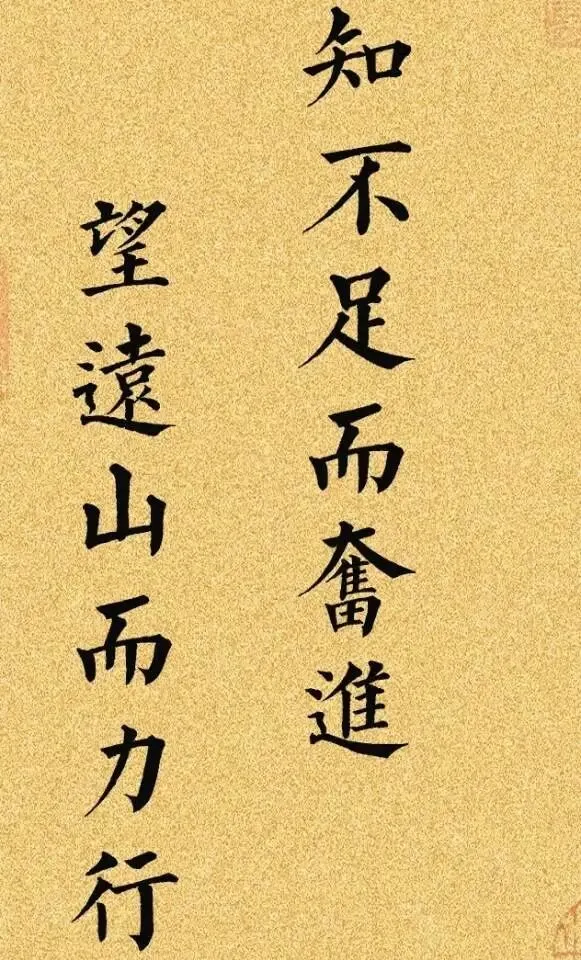 知不足而奮進
望遠山而力行